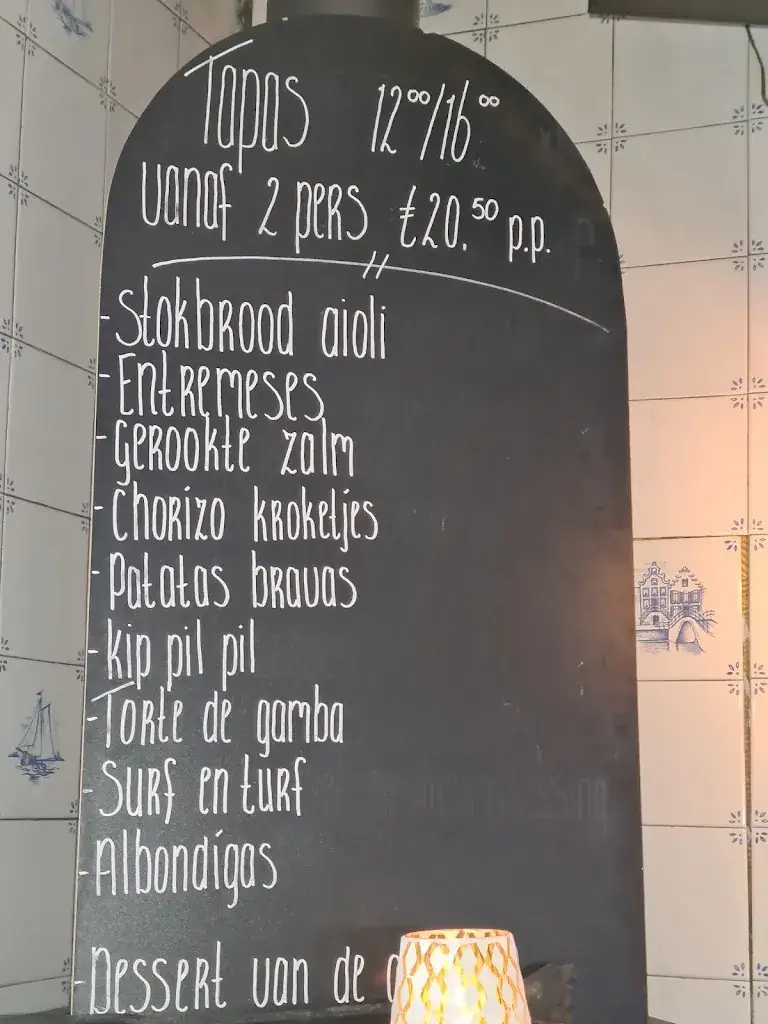 Tapas 12⁰⁰/16⁰⁰
vanaf 2 pers €20.⁵⁰ p.p.
-Stokbrood aioli
-Entremeses
-Gerookte zalm
-Chorizo kroketjes
-Patatas bravas
-Kip pil pil
-Torte de gamba
-Surf en turf
-Albondígas
-Dessert van de